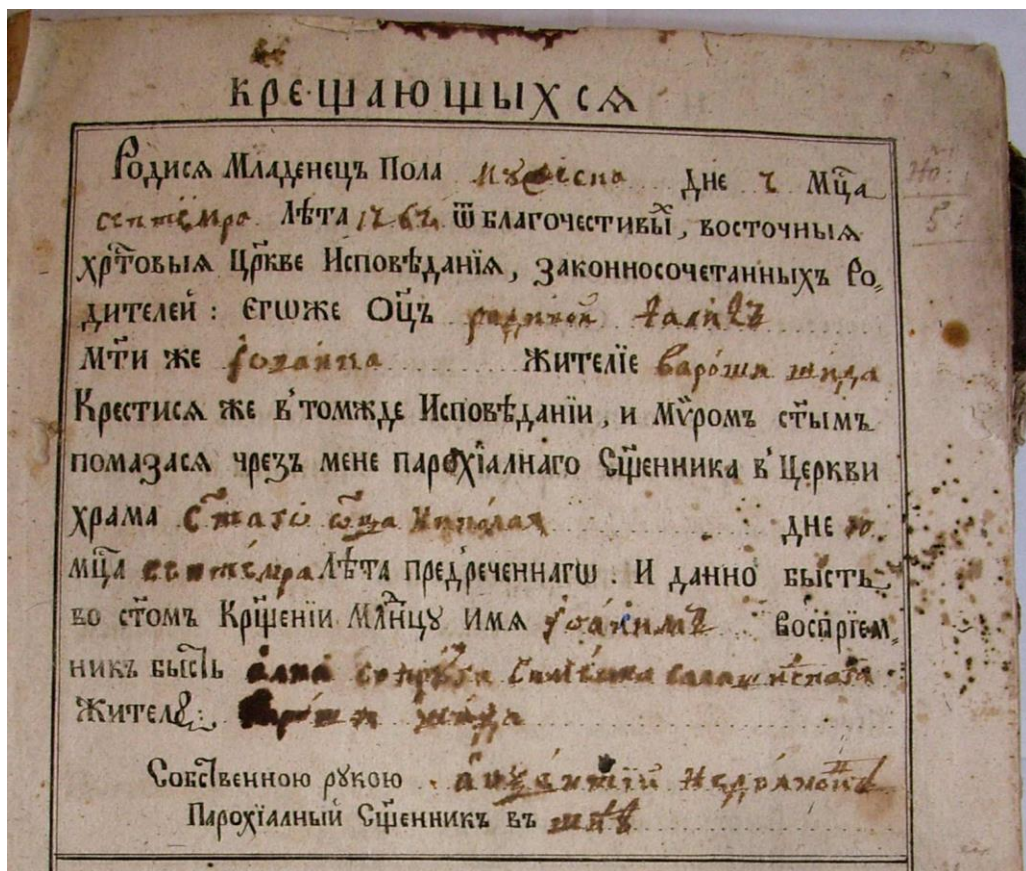 КРЕЩАЮЩЫХСѦ
Родисѧ Младенецъ Пола мужеска Дне ч Мц҃а
септемра Лѣта Ѿ благочестивы́хъ, восточныѧ
хрⷭ҇товыѧ Цр҃кве Исповѣданїѧ, законносочетанныхъ Ро-
дителей: егѡже Оц҃ъ
Мт҃и же Іоанна Жителїе варо́ши шида
Крестисѧ же в' томжде Исповѣданїи, и мѵ́ромъ ст҃ымъ
помазасѧ чрезъ мене парохїалнаго Сщ҃енника в' Церкви
храма Ст҃аго ѻц҃а Николаѧ дне
мц҃а септе́мра Лѣта предреченнагѡ. И данно бысть
во ст҃омъ Крщ҃енїи Млⷣнцу Имѧ Іоа́кимъ Воспрїем-
никъ бысть
Жител варо́ши шида
Собственною рукою
Парохїалный Сщ҃енникъ въ шидѣ
Но:
5: